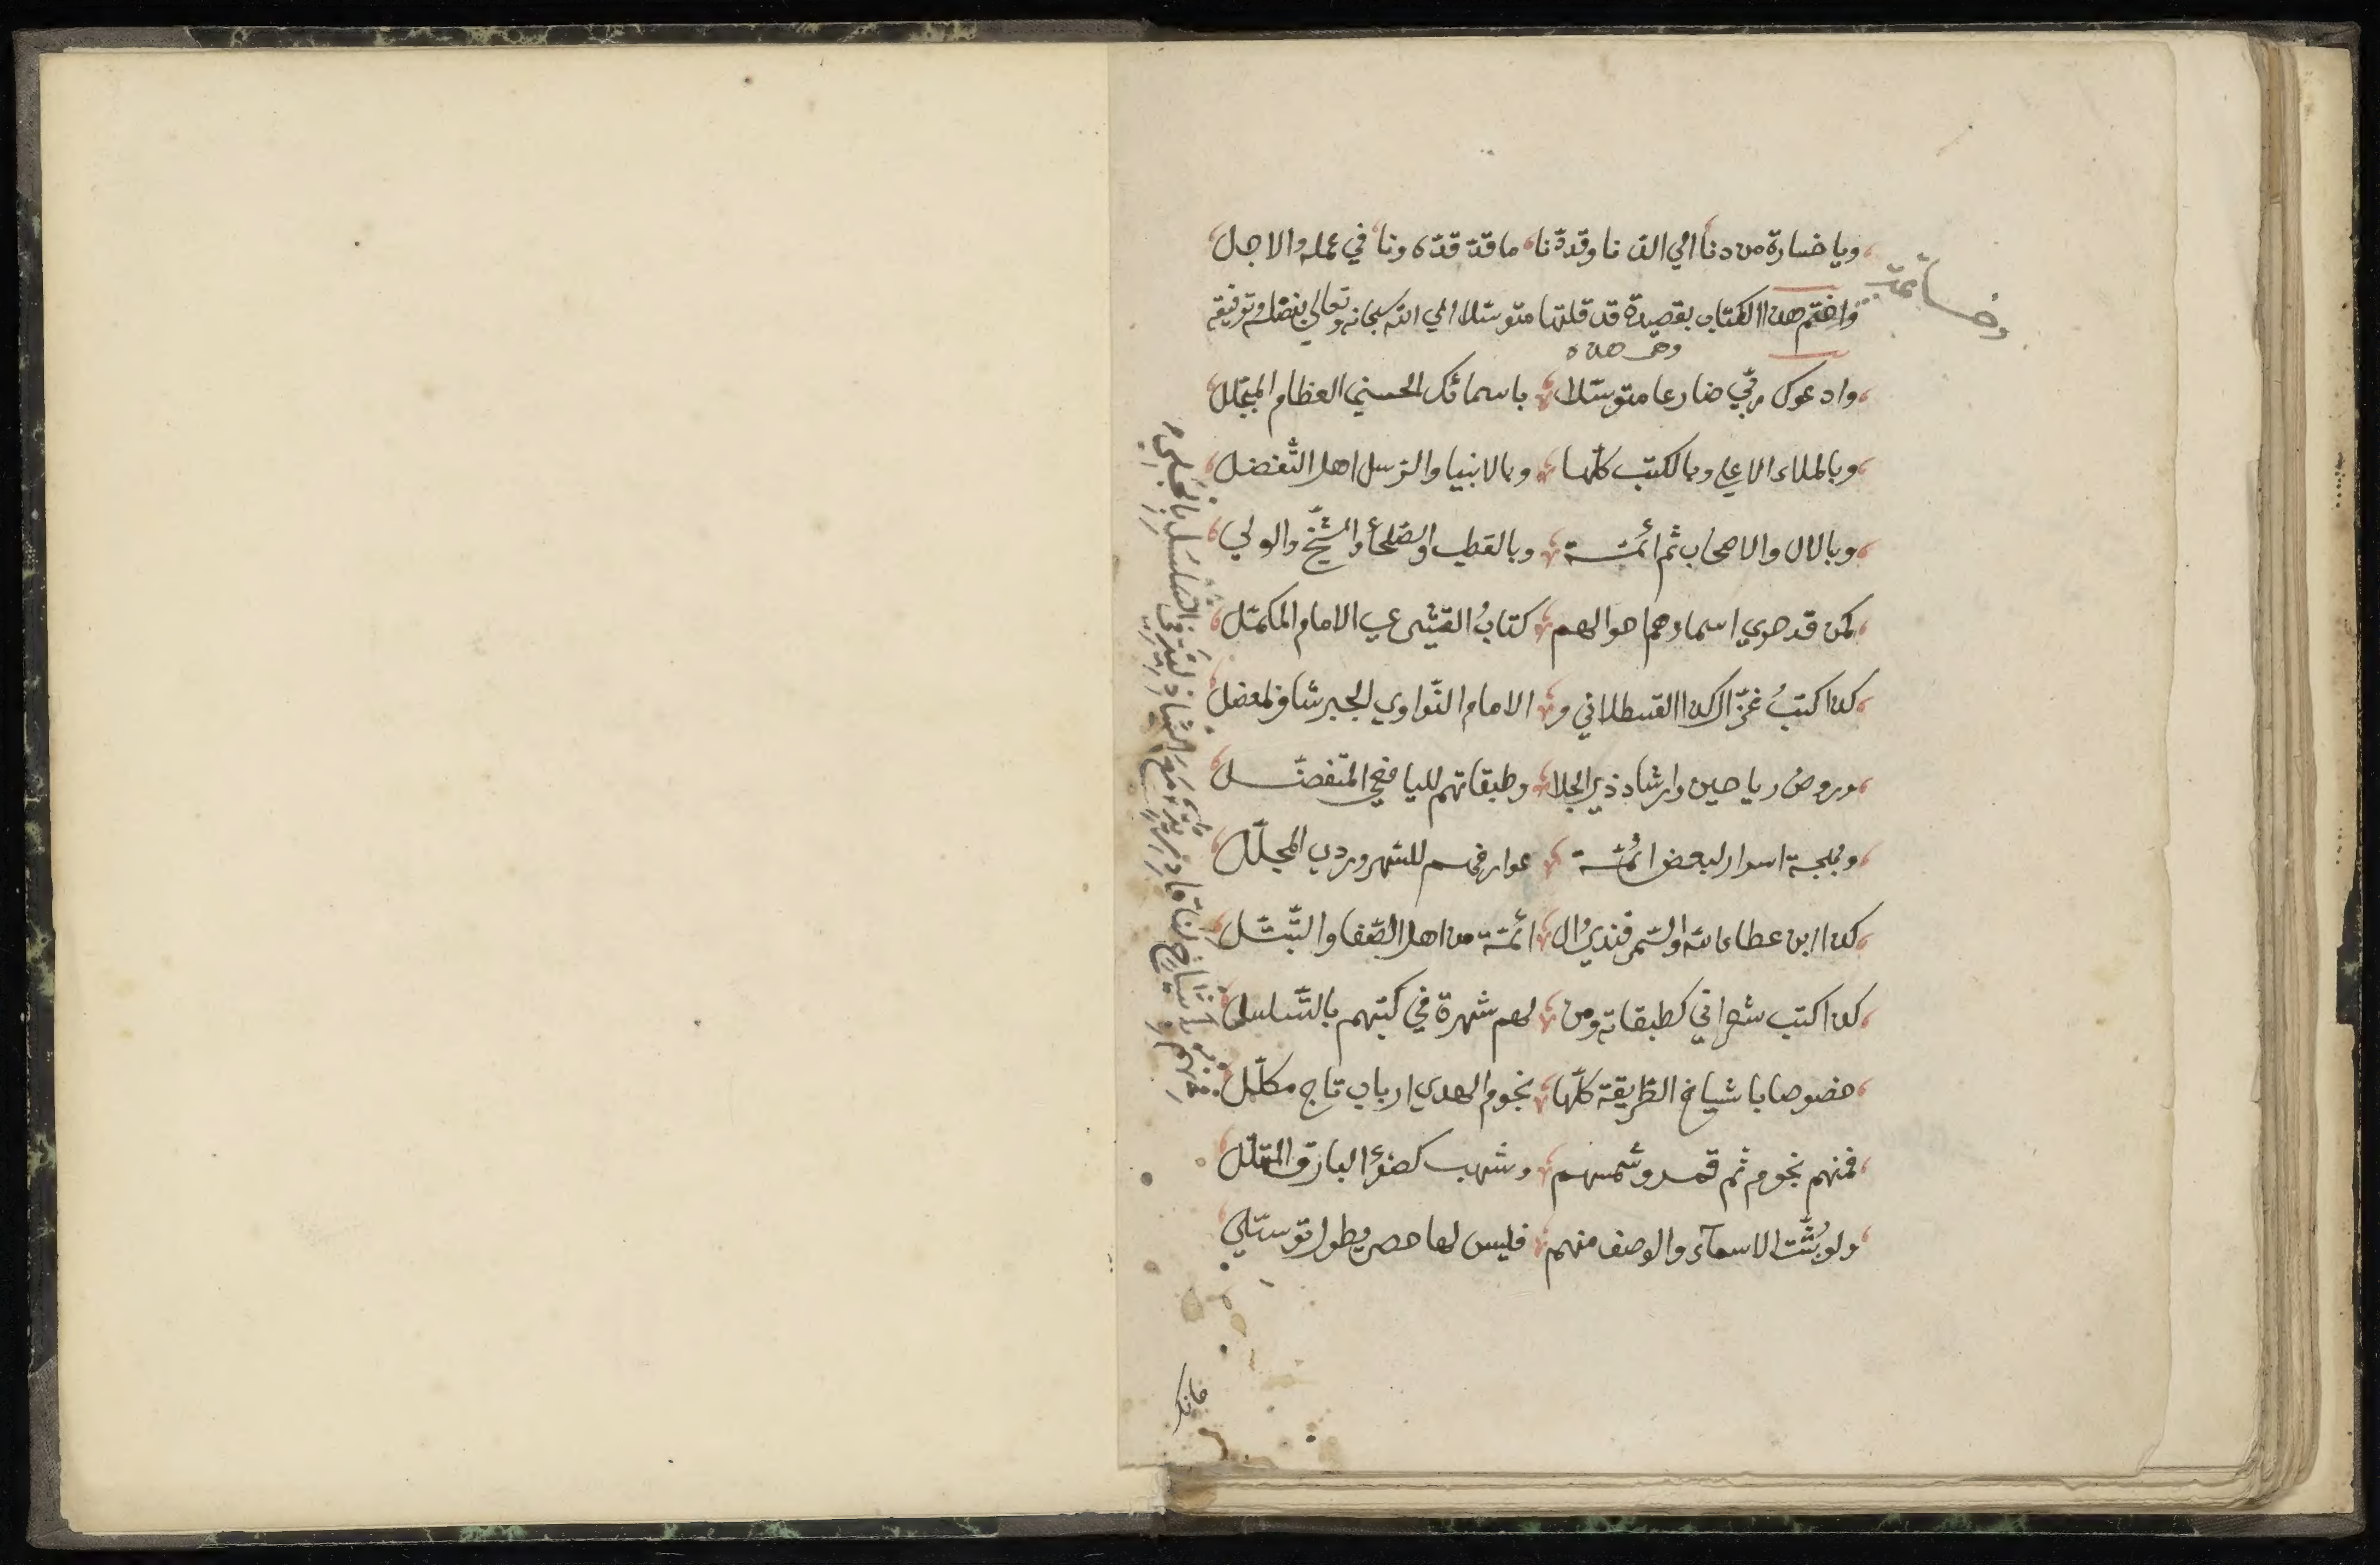 ويا خسارة من دنا الي الدنا وقد دنا ما قد قدّه ودنا في عمله والاجل
وخاتمة
واختم هذا الكتاب بقصيدة قد قلتها متوسّلا الي الله سبحانه وتعالى بفضله وتوفيقه
وهى هذه
وادعوك ربّي ضارعا متوسّلا باسمائك الحسني العظام المبجّل
وبالملاء الاعلي وبالكتب كلّها وبالانبيا والرسل اهل التّفضل
وبالال والاصحاب ثم ائمّة وبالقطب والصّلحأ والشّيخ والولي
كمن قد حوي اسماوهم احوالهم كتابُ القشيري الامام المكمّل
كذا كتبُ غزّال كذا القسطلاني و الامام النّواوي الحبر شافى لمعضل
وروض رياحين وارشاد ذي الجلا وطبقاتهم لليافعي المتفضّل
وبهجة اسرار لبعض ائمّة عوارفهم للسّهروردي المجلّل
كذا ابن عطاء الله والسّمرقنديّ ال ائمّة من اهل الصّفا والتّبتّل
كذا كتب شعراني كطبقاته ومن لهم شهرة في كتبهم بالتّسلسل
خصوصا باشياخ الطّريقة كلّها نجوم الهدي ارباب تاج مكلّل
فمنهم نجوم ثم قمر وشمسهم وشهب كضوء البارق المتهلّل
ولو بُثّت الاسمآء والوصف منهم فليس لها حصر يطول توسّلي